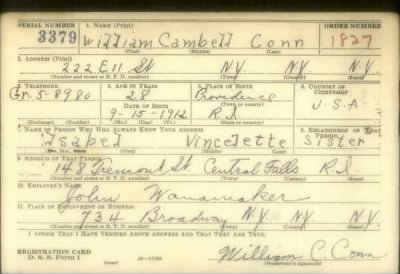 SERIAL NUMBER 1. NAME (Print) ORDER NUMBER
3379 William Cambell Conn 1827
2. ADDRESS (Print)
222 E 11 St N.Y. N.Y. N.Y.
(Number and street or R. F. D. number) (Town) (County) (State)
3. TELEPHONE 4. AGE IN YEARS 5. PLACE OF BIRTH 6. COUNTRY OF CITIZENSHIP
Gr-5-8980 28 Providence
DATE OF BIRTH (Town or county) U-S-A
9-15-1912 R.I.
(Exchange) (Number) (Mo.) (Day) (Yr.) (State or country)
7. NAME OF PERSON WHO WILL ALWAYS KNOW YOUR ADDRESS 8. RELATIONSHIP OF THAT PERSON
Isabel Vincelette Sister
9. ADDRESS OF THAT PERSON
148 Tremont St. Central Falls R.I
(Number and street or R. F. D. number) (Town) (County) (State)
10. EMPLOYER'S NAME
John Wanamaker
11. PLACE OF EMPLOYMENT OR BUSINESS
734 Broadway N.Y. N.Y. N.Y.
(Number and street or R. F. D. number) (Town) (County) (State)
I AFFIRM THAT I HAVE VERIFIED ABOVE ANSWERS AND THAT THEY ARE TRUE.
REGISTRATION CARD
D. S. S. Form 1 William C. Conn
(Registrant's signature)